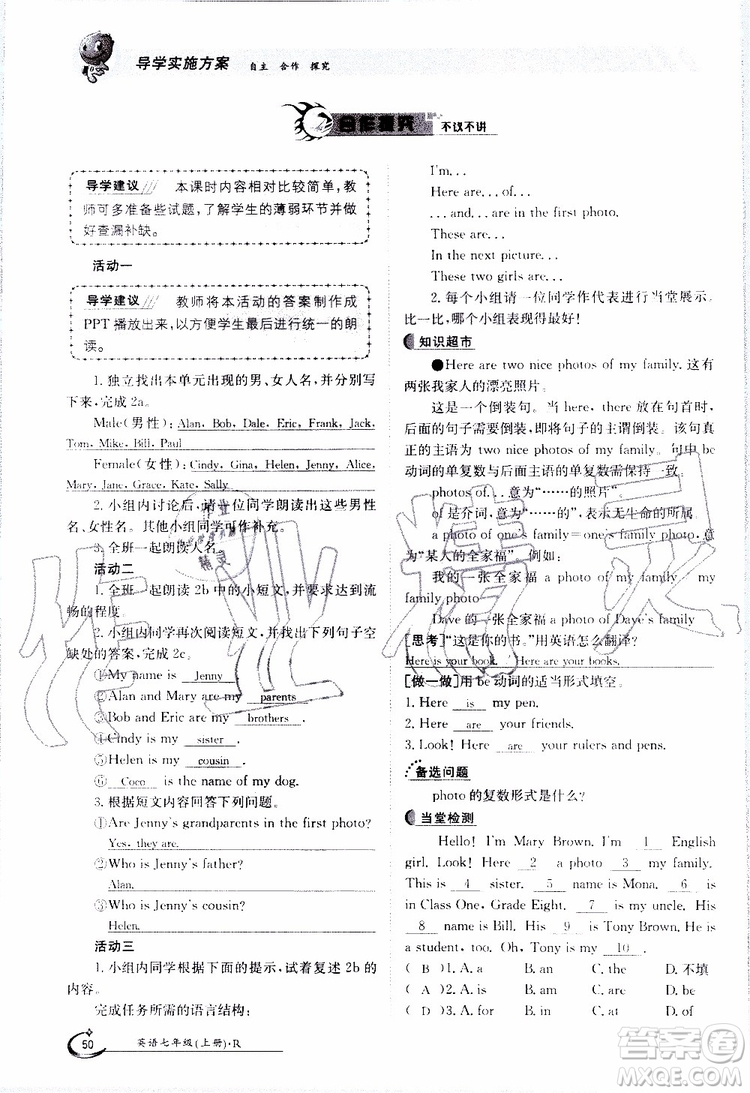 导学实施方案 自主 合作 探究
合作探究 不议不讲
导学建议 本课时内容相对比较简单,教
师可多准备些试题,了解学生的薄弱环节并做
好查漏补缺。
活动一
导学建议 教师将本活动的答案制作成
PPT 播放出来,以方便学生最后进行统一的朗
读。
1. 独立找出本单元出现的男、女人名,并写
下来,完成 2a。
Male(男性): Alan, Bob, Dale, Eric, Frank, Jack,
Tom, Mike, Bill, Paul
Female(女性): Cindy, Gina, Helen, Jenny, Alice,
Mary, Jane, Grace, Kate, Sally
2. 小组内讨论后,请一位同学朗读出这些男性
名、女性名。其他小组同学可作补充。
3. 全班一起朗读人名。
活动二
1. 全班一起朗读 2b 中的小短文,并要达到流
畅的程度。
2. 小组内同学再次阅读短文,并找出下列句子空
缺处的答案,完成 2c。
①My name is Jenny .
②Alan and Mary are my parents .
③Bob and Eric are my brothers .
④Cindy is my sister .
⑤Helen is my cousin .
⑥ Coco is the name of my dog.
3. 根据短文内容回答下列问题。
①Are Jenny's grandparents in the first photo?
Yes, they are.
②Who is Jenny's father?
Alan.
③Who is Jenny's cousin?
Helen.
活动三
1. 小组内同学根据下面的提示,试着复述 2b 的
内容。
完成任务所需的语言结构:
I'm. . .
Here are. . . of. . .
. . . and. . . are in the first photo.
These are. . .
In the next picture. . .
These two girls are. . .
2. 每个小组请一位同学作代表进行当堂展示。
比一比,哪个小组表现得最好!
知识超市
●Here are two nice photos of my family. 这有
两张我家人的漂亮照片。
这是一个倒装句。当 here, there 放在句首时,
后面的句子需要倒装,即将句子的主谓倒装。该句真
正的主语为 two nice photos of my family。句中 be
动词的单复数与后面主语的单复数需保持一致。
photo of. . . 意为“……的照片”。
of 是介词,意为“……的”,表示所有的所属关系。
a photo of one's family=one's family photo,
意为“某人的全家福”。例如:
我的一张全家福 a photo of my family/my
family photo
Dave 的一张全家福 a photo of Dave's family
[思考]“这是你的书。”用英语怎么翻译?
Here is your book. Here are your books.
[做一做]用 be 动词的适当形式填空。
1. Here is my pen.
2. Here are your friends.
3. Look! Here are your rulers and pens.
备选问题
photo 的复数形式是什么?
当堂检测
Hello! I'm Mary Brown. I'm 1 English
girl. Look! Here 2 a photo 3 my family.
This is 4 sister. 5 name is Mona. 6 is
in Class One, Grade Eight. 7 my brother. His
8 name is Bill. His 9 is Tony Brown. He is
a student, too. Oh, Tony is my 10 .
( B )1. A. a B. an C. the D. 不填
( A )2. A. is B. am C. are D. be
( D )3. A. for B. in C. at D. of
50 英语七年级(上册)·R
作业精灵